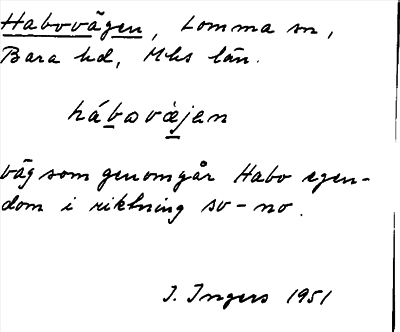 Habovägen, Lomma sn,
Bara hd, Mhs län.
hábovæ̀jan
väg som genomgår Habo egen-
dom i riktning sv-no.
I. Ingers 1951